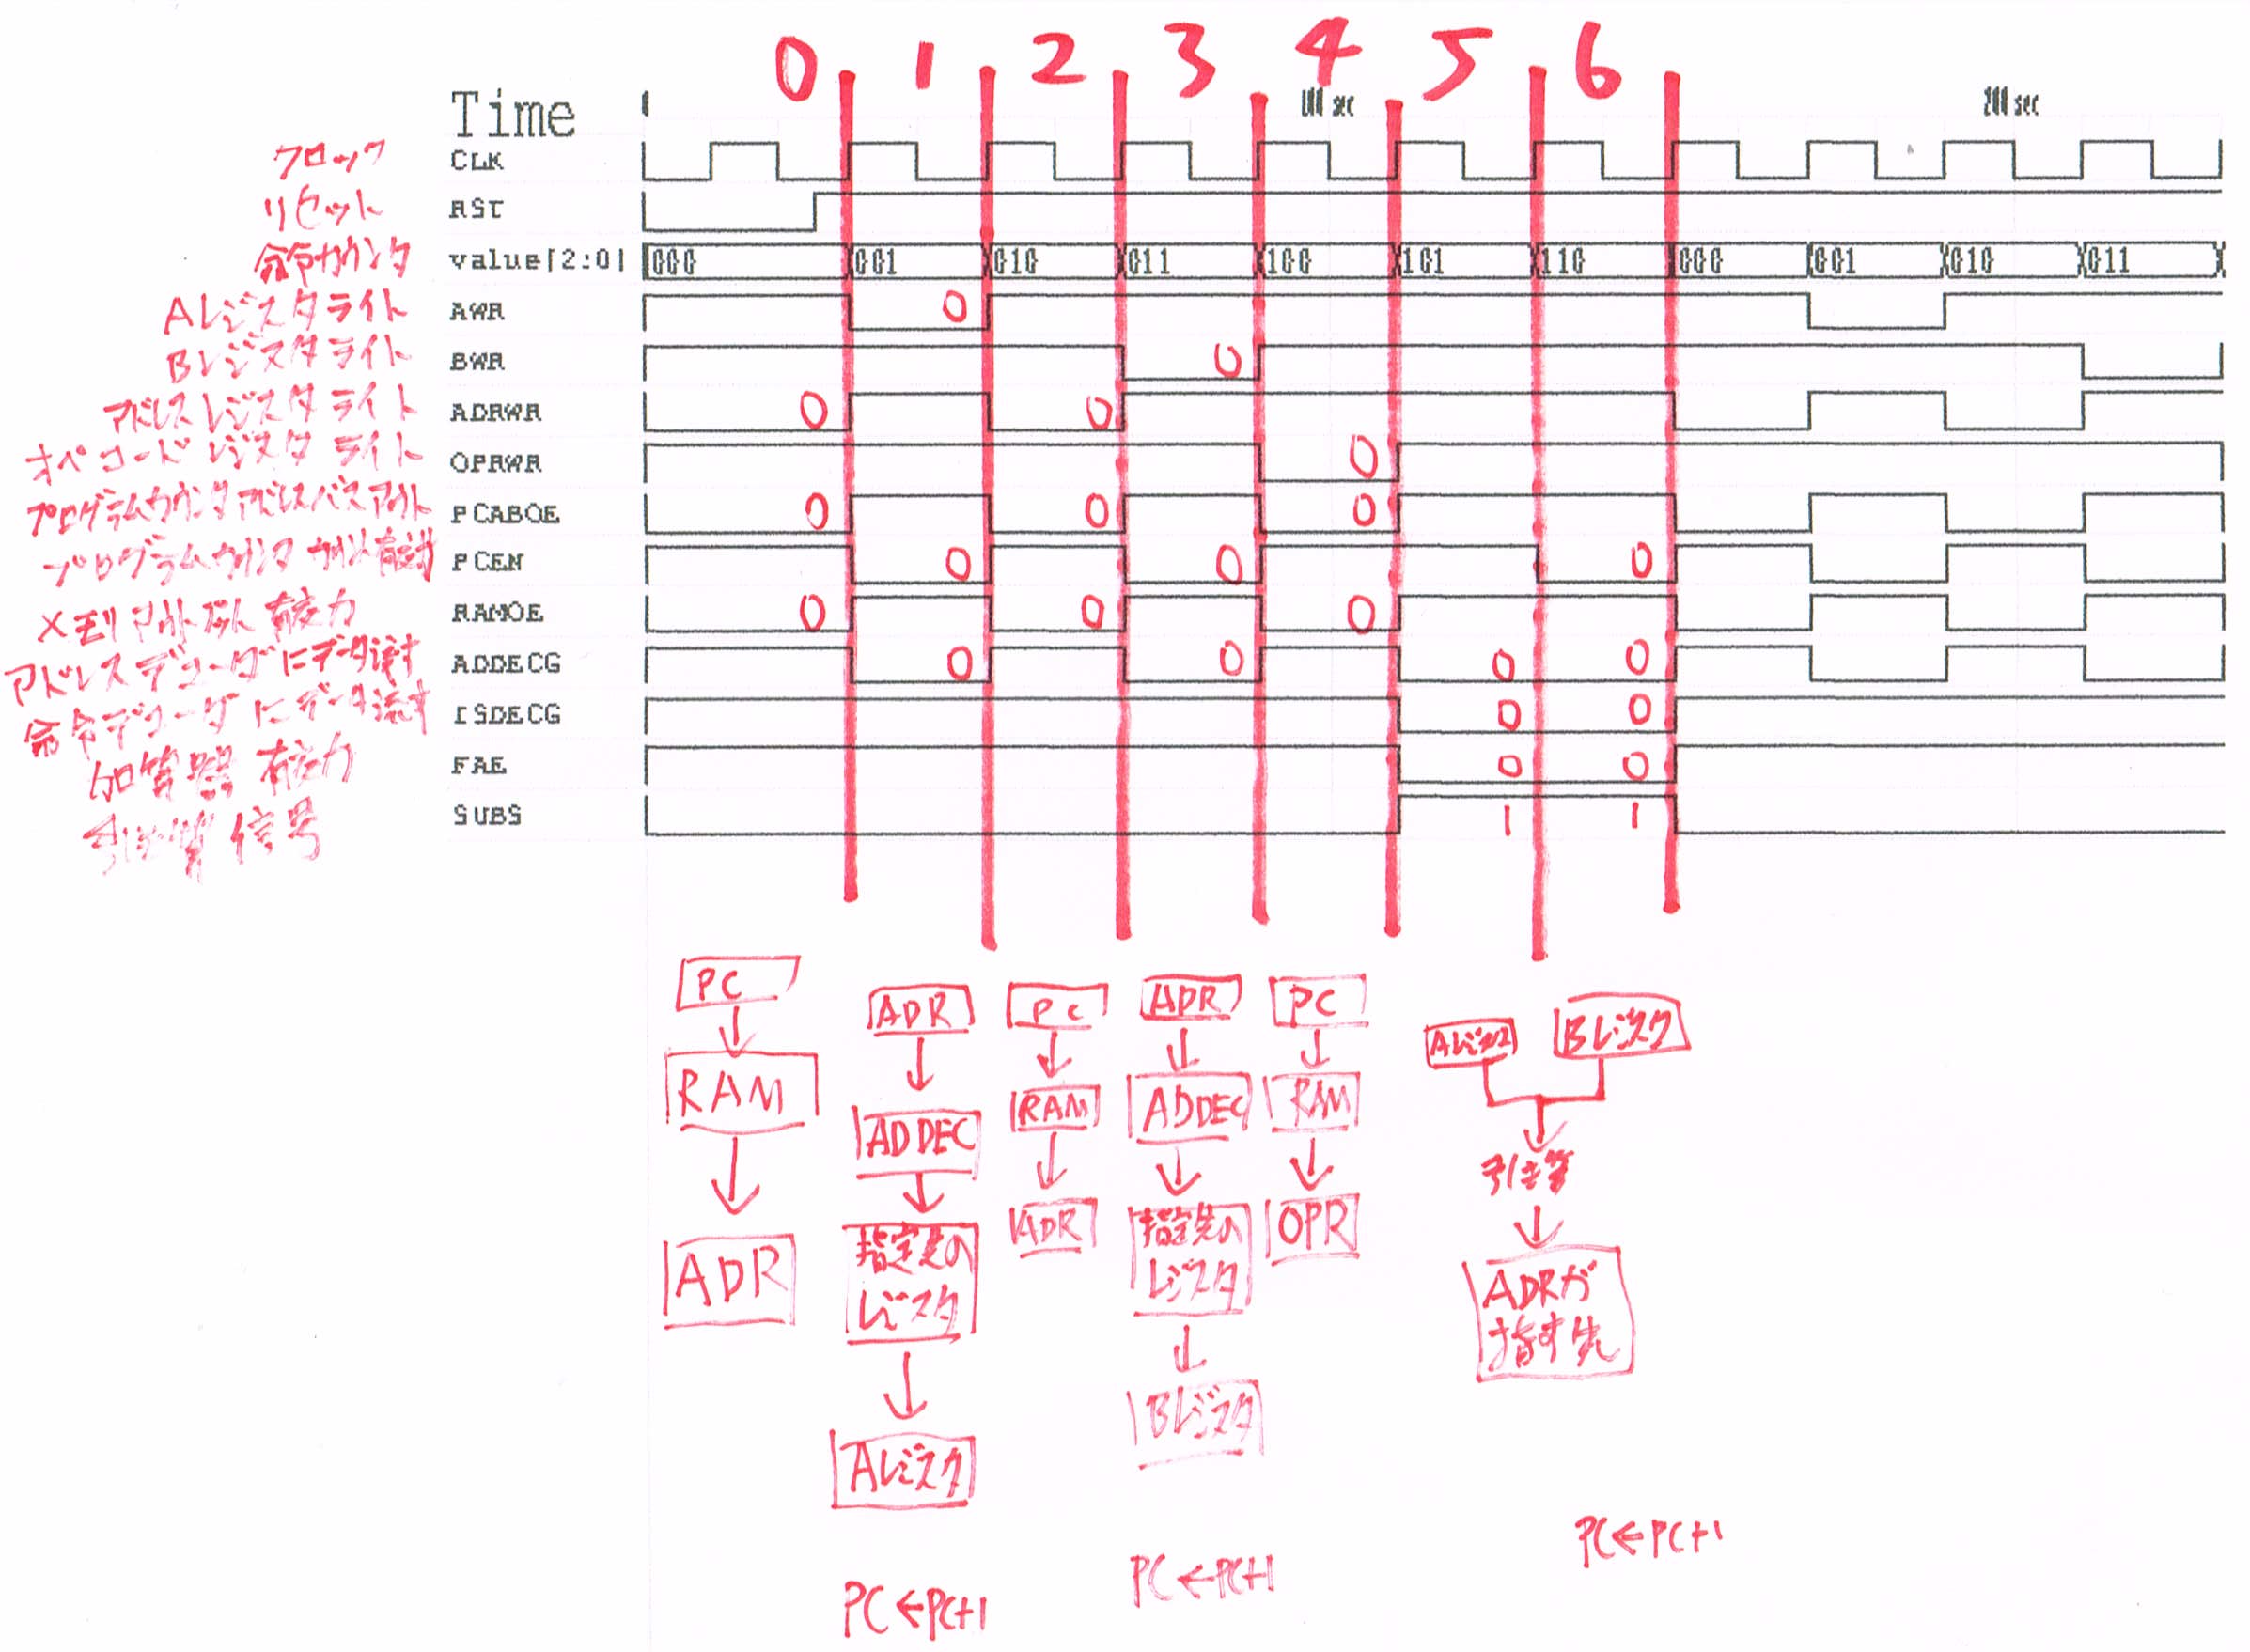 0 1 2 3 4 5 6
Time 100 sec 200 sec
クロック CLK
リセット RST
命令カウンタ value[2:0] 000 001 010 011 100 101 110 000 001 010 011
Aレジスタライト AWR 0
Bレジスタライト BWR 0
アドレスレジスタライト ADRWR 0 0
オペコードレジスタライト OPRWR 0
プログラムカウンタアドレスバスアウト PCABOE 0 0 0
プログラムカウンタ PCEN 0 0 0
メモリアウトプット有効 RAMOE 0 0 0
アドレスデコーダにデータ流す ADDECG 0 0 0 0
命令デコーダにデータ流す ISDECG 0 0
加算器有効 FAE 0 0
引き算信号 SUBS 1 1
PC
RAM
ADR
ADR
ADDEC
指定先の
レジスタ
Aレジスタ
PC←PC+1
PC
RAM
ADR
ADR
ADDEC
指定先の
レジスタ
Bレジスタ
PC←PC+1
PC
RAM
OPR
Aレジスタ Bレジスタ
引き算
ADRが
指す先
PC←PC+1